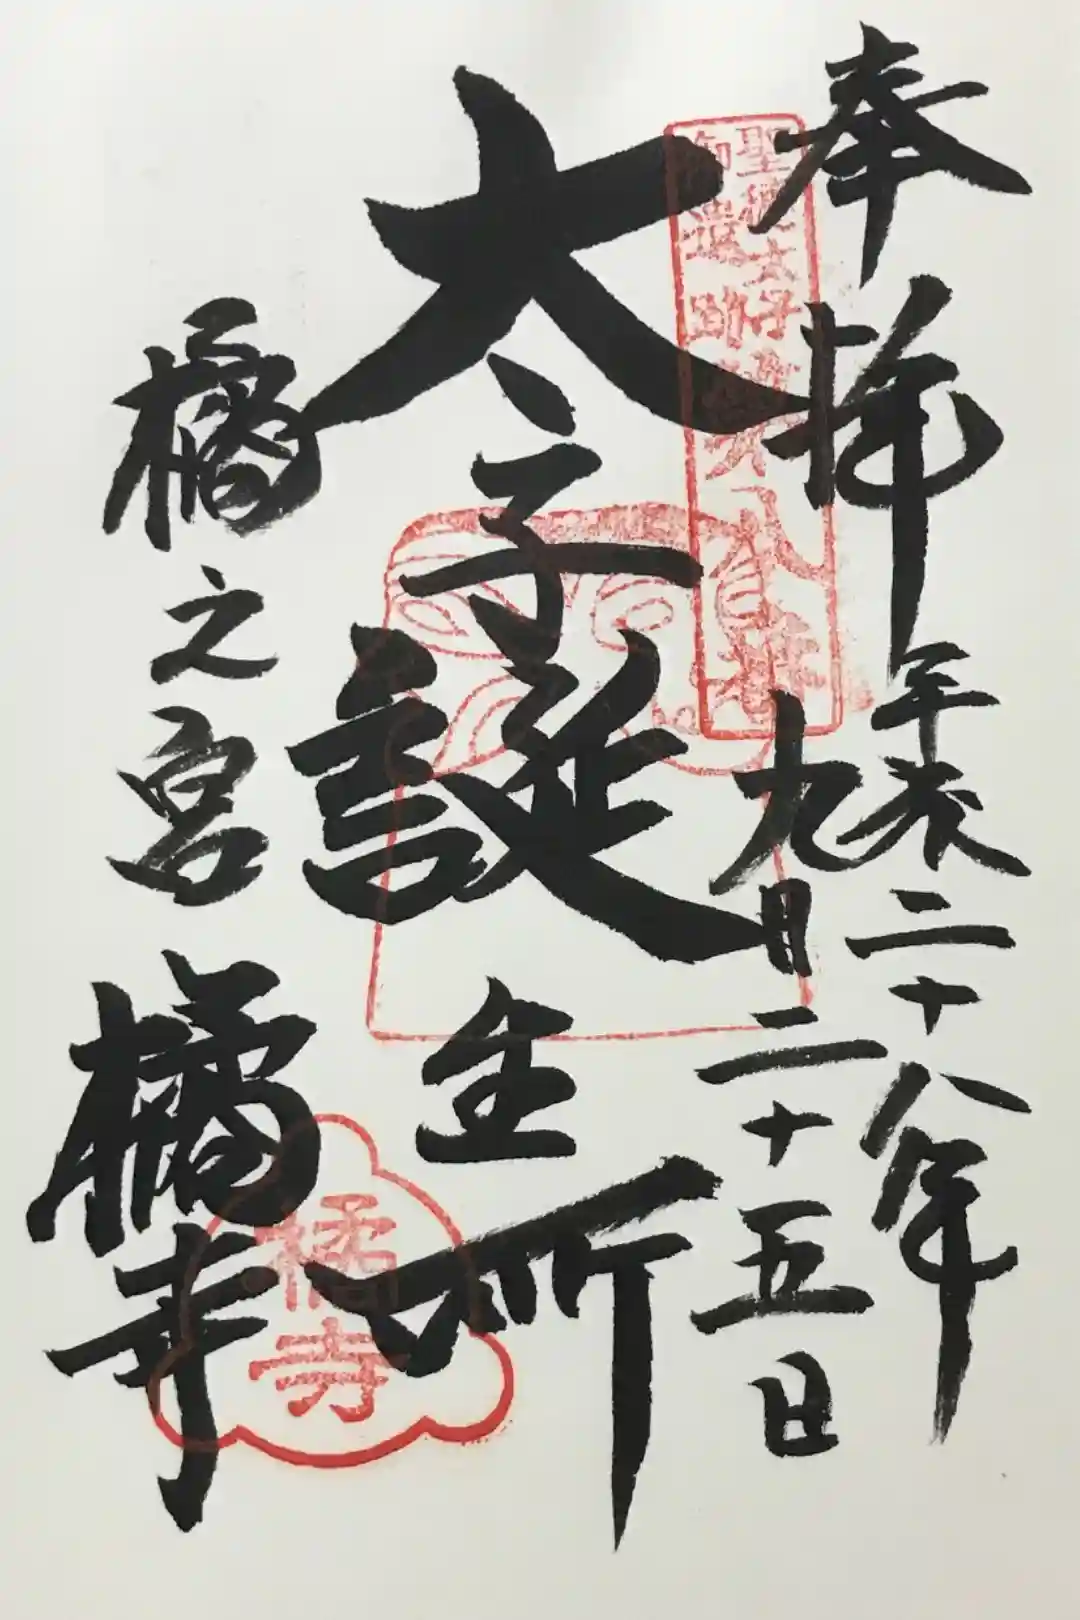 奉拝
平成二十八年
九月二十五日
聖徳太子
御遺跡
太子誕生所
橘之宮
橘寺
橘寺